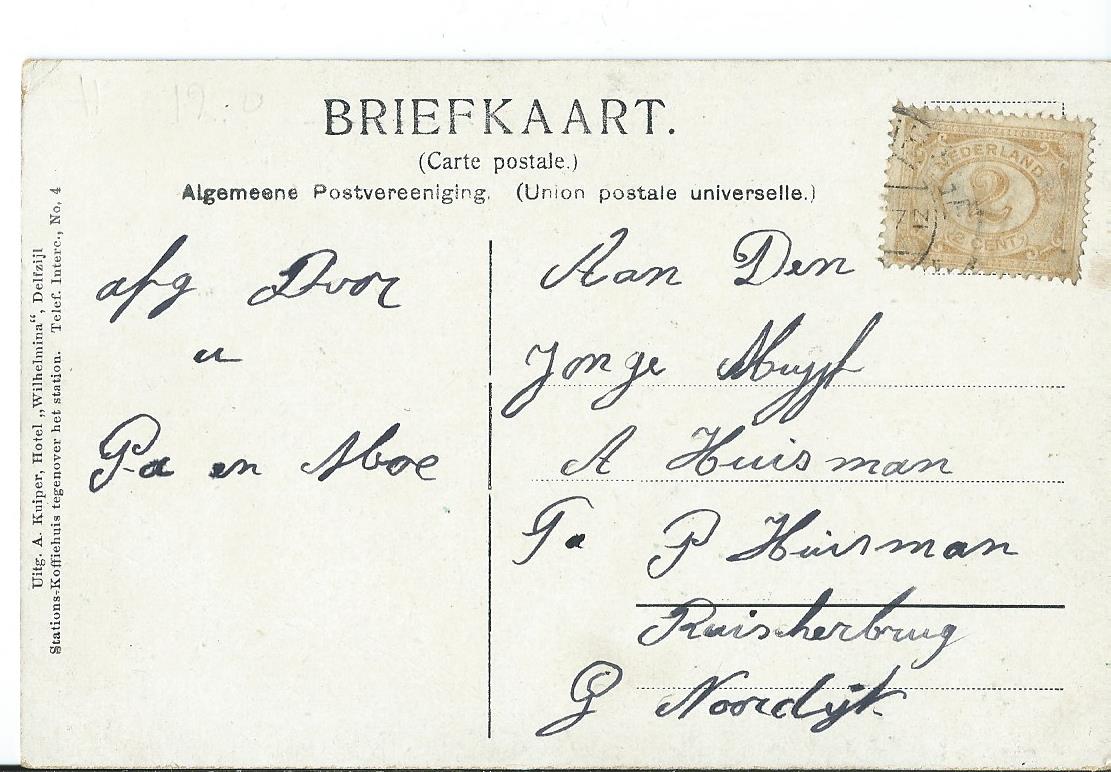 BRIEFKAART.
(Carte postale.)
Algemeene Postvereeniging. (Union postale universelle.)
Uitg. A. Kuiper, Hotel „Wilhelmina“, Delfzijl
Stations-Koffiehuis tegenover het station. Telef. Interc., No. 4
NEDERLAND
2
2 CENT
afzg Door
u
Pa en Moe
Aan Den
Jonge
A Huisman
Ta P Huisman
Ruischerbrug
G Noordijk